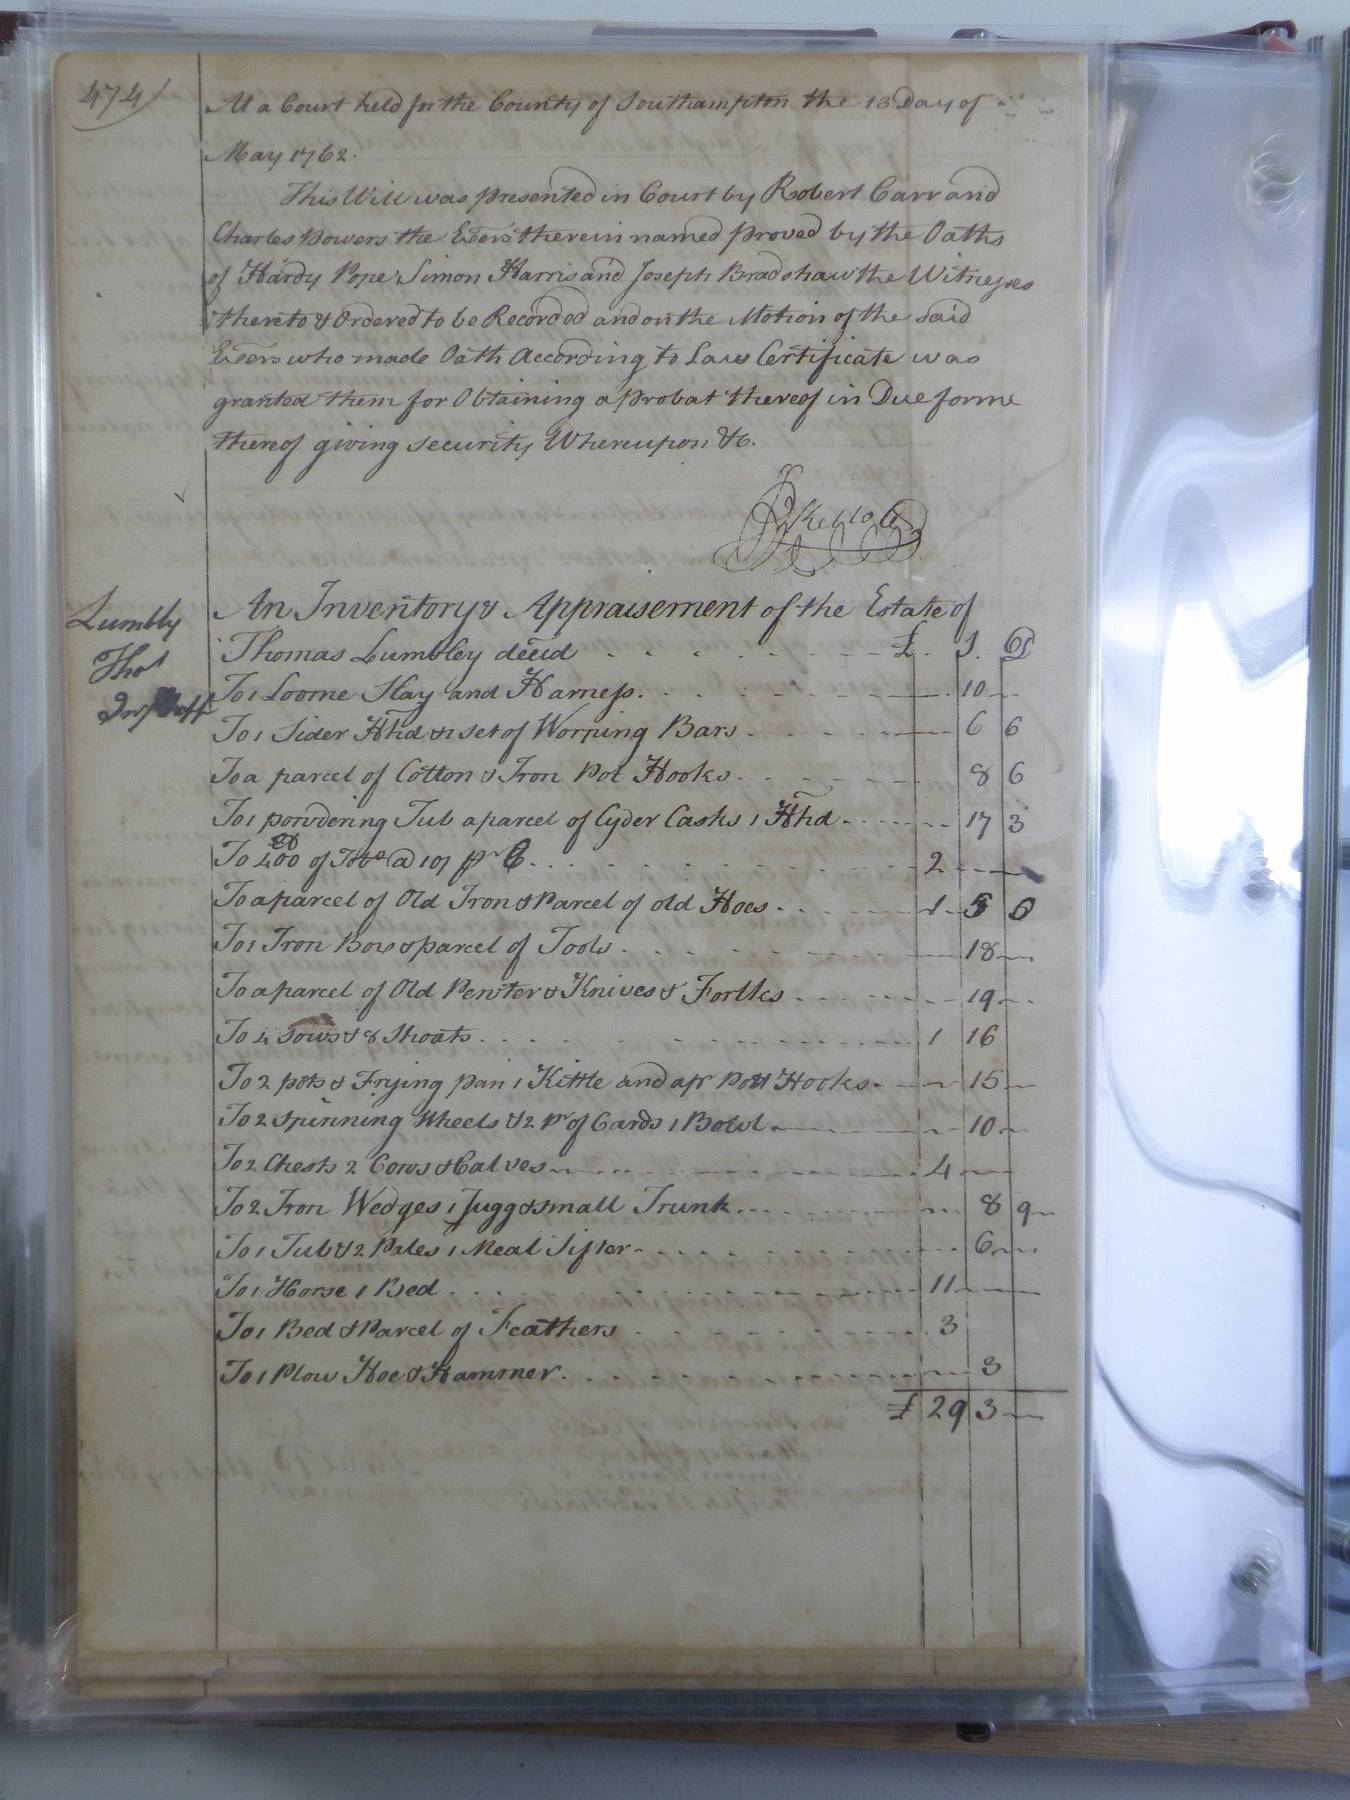 474
At a Court held for the County of Southampton the 13 Day of
May 1762.
This Will was presented in Court by Robert Carr and
Charles Powers the Exers therein named proved by the Oaths
of Hardy Pope Simon Harris and Joseph Bradshaw the Witnesses
thereto & Ordered to be Recorded and on the Motion of the said
Exers who made Oath According to Law Certificate was
granted them for Obtaining a probat thereof in Due forme
thereof giving security Whereupon &c.
Lumbly
Thos
An Inventory & Appraisement of the Estate of
Thomas Lumbley decd £ S. D
To 1 Loome Slay and Harness 10
To 1 Sider Hhd & 1 set of Worping Bars 6 6
To a parcel of Cotton & Iron Pot Hooks 8 6
To 1 powdering Tub a parcel of Cyder Casks 1 Hhd 17 3
To 400 of Tobo @ 10/ pr C 2
To a parcel of Old Iron & Parcel of old Hoes 1 5 6
To 1 Iron Box & parcel of Tools 18
To a parcel of Old Pewter & Knives & Forlks 19
To 4 Sows & 8 Shoats 1 16
To 2 pots & Frying pan 1 Kittle and a pr Pott Hooks 15
To 2 Spinning Wheels & 2 Pr of Cards 1 Bowl 10
To 2 Chests 2 Cows & Calves 4
To 2 Iron Wedges 1 Jugg & small Trunk 8 9
To 1 Tub & 2 Pales 1 Meal Sifter 6
To 1 Horse 1 Bed 11
To 1 Bed & Parcel of Feathers 3
To 1 Plow Hoe & Hammer 3
£ 29 3